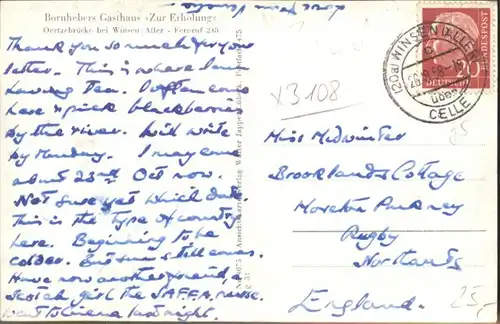 Bornhebers Gasthaus »Zur Erholung«
Oertzebrücke bei Winsen / Aller - Fernruf 263
Thank you so much for your
letter. This is where I am
having Tea. I often come
here & pick blackberries
by the river. Will write
by Monday. I may come
about 23rd Oct now.
Not sure yet which date.
This is the type of country
here. Beginning to be
colder. But sun still comes.
Have now another friend, a
Scotch girl the S.A.F.F.A. nurse.
went to cinema last night.
x3108
(20a) WINSEN (ALLER)
über
CELLE
DEUTSCHE BUNDESPOST
20
Miss Midwinter
Brooklands Cottage
Moreton Pinkney
Rugby
Northants
England.
25
25,-